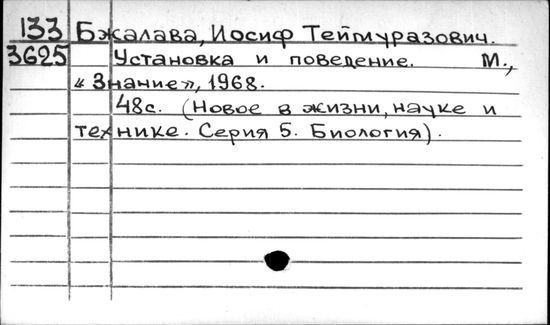 133 Бжалава, Иосиф Теймуразович.
3625 Установка и поведение. М.,
«Знание», 1968.
48с. (Новое в жизни, науке и
технике. Серия 5. Биология).